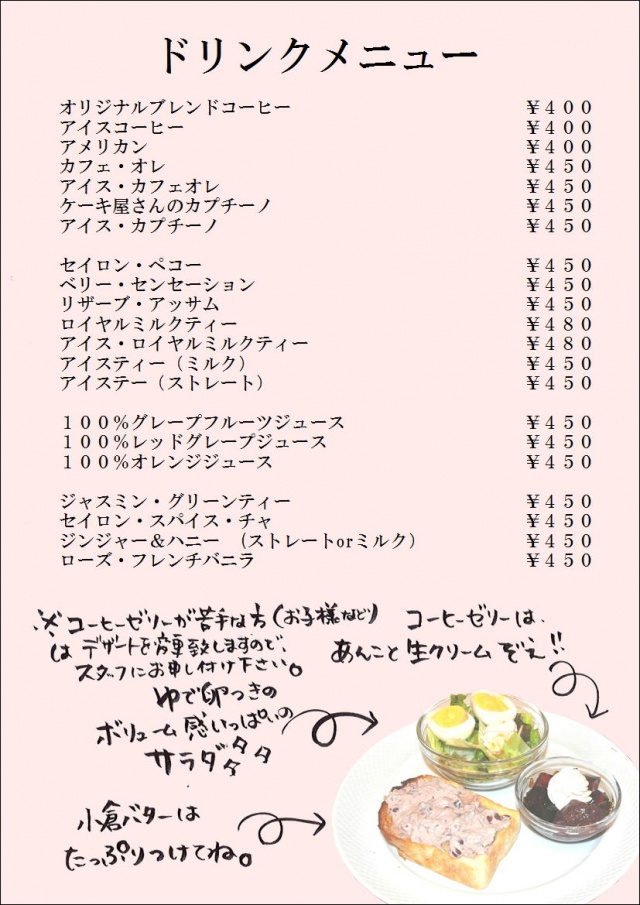 ドリンクメニュー
オリジナルブレンドコーヒー ￥４００
アイスコーヒー ￥４００
アメリカン ￥４００
カフェ・オレ ￥４５０
アイス・カフェオレ ￥４５０
ケーキ屋さんのカプチーノ ￥４５０
アイス・カプチーノ ￥４５０
セイロン・ペコー ￥４５０
ベリー・センセーション ￥４５０
リザーブ・アッサム ￥４５０
ロイヤルミルクティー ￥４８０
アイス・ロイヤルミルクティー ￥４８０
アイスティー（ミルク） ￥４５０
アイステー（ストレート） ￥４５０
１００％グレープフルーツジュース ￥４５０
１００％レッドグレープジュース ￥４５０
１００％オレンジジュース ￥４５０
ジャスミン・グリーンティー ￥４５０
セイロン・スパイス・チャ ￥４５０
ジンジャー＆ハニー　（ストレートorミルク） ￥４５０
ローズ・フレンチバニラ ￥４５０
※コーヒーゼリーが苦手な方（お子様など）
はデザートを変更致しますので、
スタッフにお申し付け下さい。
コーヒーゼリーは、
あんこと生クリームぞえ!!
ゆで卵つきの
ボリューム感いっぱいの
サラダダダダ
小倉バターは
たっぷりつけてね。